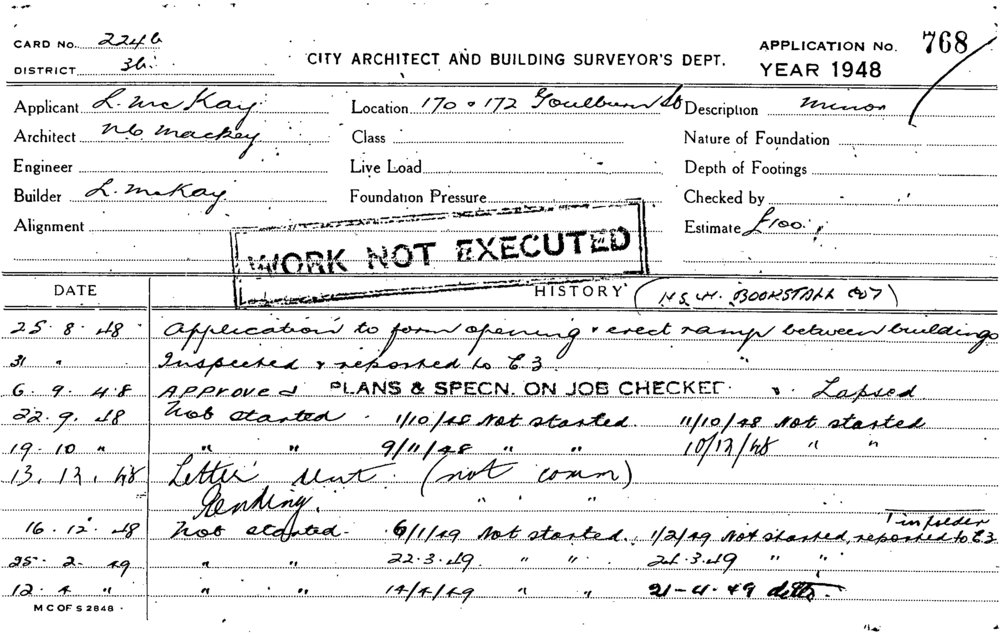 CARD No. 2246
DISTRICT 36.
CITY ARCHITECT AND BUILDING SURVEYOR'S DEPT.
APPLICATION No. 768
YEAR 1948
Applicant L. McKay. Location 170-172 Goulburn St Description Minor
Architect Mackey Class Nature of Foundation
Engineer Live Load Depth of Footings
Builder L. McKay Foundation Pressure Checked by
Alignment Estimate £100.
WORK NOT EXECUTED
DATE HISTORY (N.S.W. BOOKSTALL COY)
25.8.48 Application to form opening & erect ramp between buildings
31 " Inspected & reported to E.3
6.9.48 APPROVED PLANS & SPECN. ON JOB CHECKED. & Lapsed
22.9.48 Not started. 1/10/48 Not started 11/10/48 Not started
19.10 " " " 9/11/48 " " 10/12/48 " "
13.12.48 Letter sent (not comm)
Pending. " "
1 in folder
16.12.48 Not started. 6/1/49 Not started. 1/2/49 Not started, reported to E.3
25.2.49 " " 22.3.49 " " 24.3.49 " "
12.4 " " " 14/4/49 " " 21-4-49 ditto.
M C OF S 2848